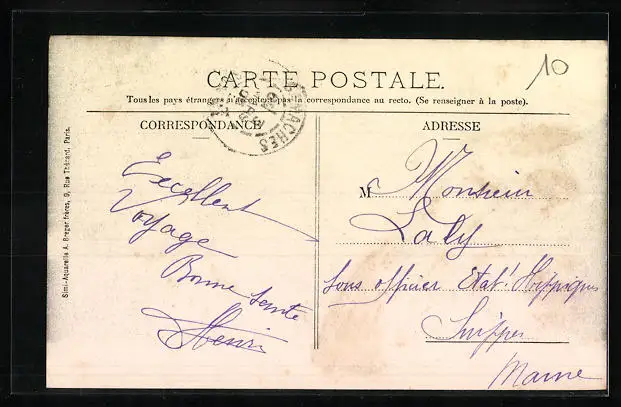 10
CARTE POSTALE.
Tous les pays étrangers n'acceptent pas la correspondance au recto. (Se renseigner à la poste).
CORRESPONDANCE
Excellent
Voyage
Bonne Sante
Henri
ADRESSE
M Monsieur
Laly
Sous officier Etat! Hippiques
Suippes
Marne
Simi-Aquarelle A. Breger frères, 9, Rue Thénard, Paris.